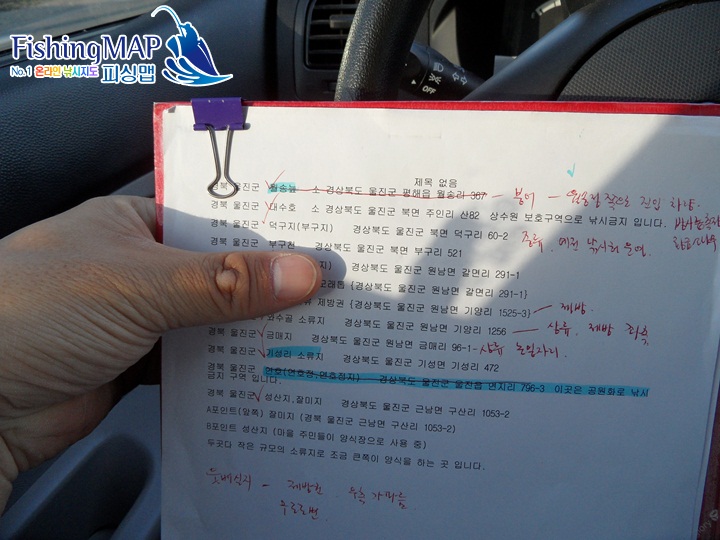 FishingMAP
No.1 온라인 낚시지도 피싱맵
제목 없음
경북 울진군 월송늪 소 경상북도 울진군 평해읍 월송리 367 - 붕어 - 쪽으로 진입 하네.
경북 울진군 대수호 소 경상북도 울진군 북면 주인리 산82 상수원 보호구역으로 낚시금지 입니다.
경북 울진군 덕구지(부구지) 경상북도 울진군 북면 덕구리 60-2
경북 울진군 부구천 경상북도 울진군 북면 부구리 521
지) 경상북도 울진군 원남면 갈면리 291-1
(경북 울진군 원남면 갈면리 291-1)
제방권 (경상북도 울진군 원남면 기양리 1525-3) - 제방.
소류지 경상북도 울진군 원남면 기양리 1256 - 상류, 제방 좌측
경북 울진군 금매지 경상북도 울진군 원남면 금매리 96-1 - 상류
경북 울진군 기성리 소류지 경상북도 울진군 기성면 기성리 472
경북 울진군 연호(연호정,연호정지) 경상북도 울진군 울진읍 연지리 796-3 이곳은 공원화로 낚시
금지 구역 입니다.
경북 울진군 성산지,잘미지 경상북도 울진군 근남면 구산리 1053-2
A포인트(앞쪽) 잘미지 (경북 울진군 근남면 구산리 1053-2)
B포인트 성산지 (마을 주민들이 양식장으로 사용 중)
두곳다 작은 규모의 소류지로 조금 큰쪽이 양식을 하는 곳 입니다.